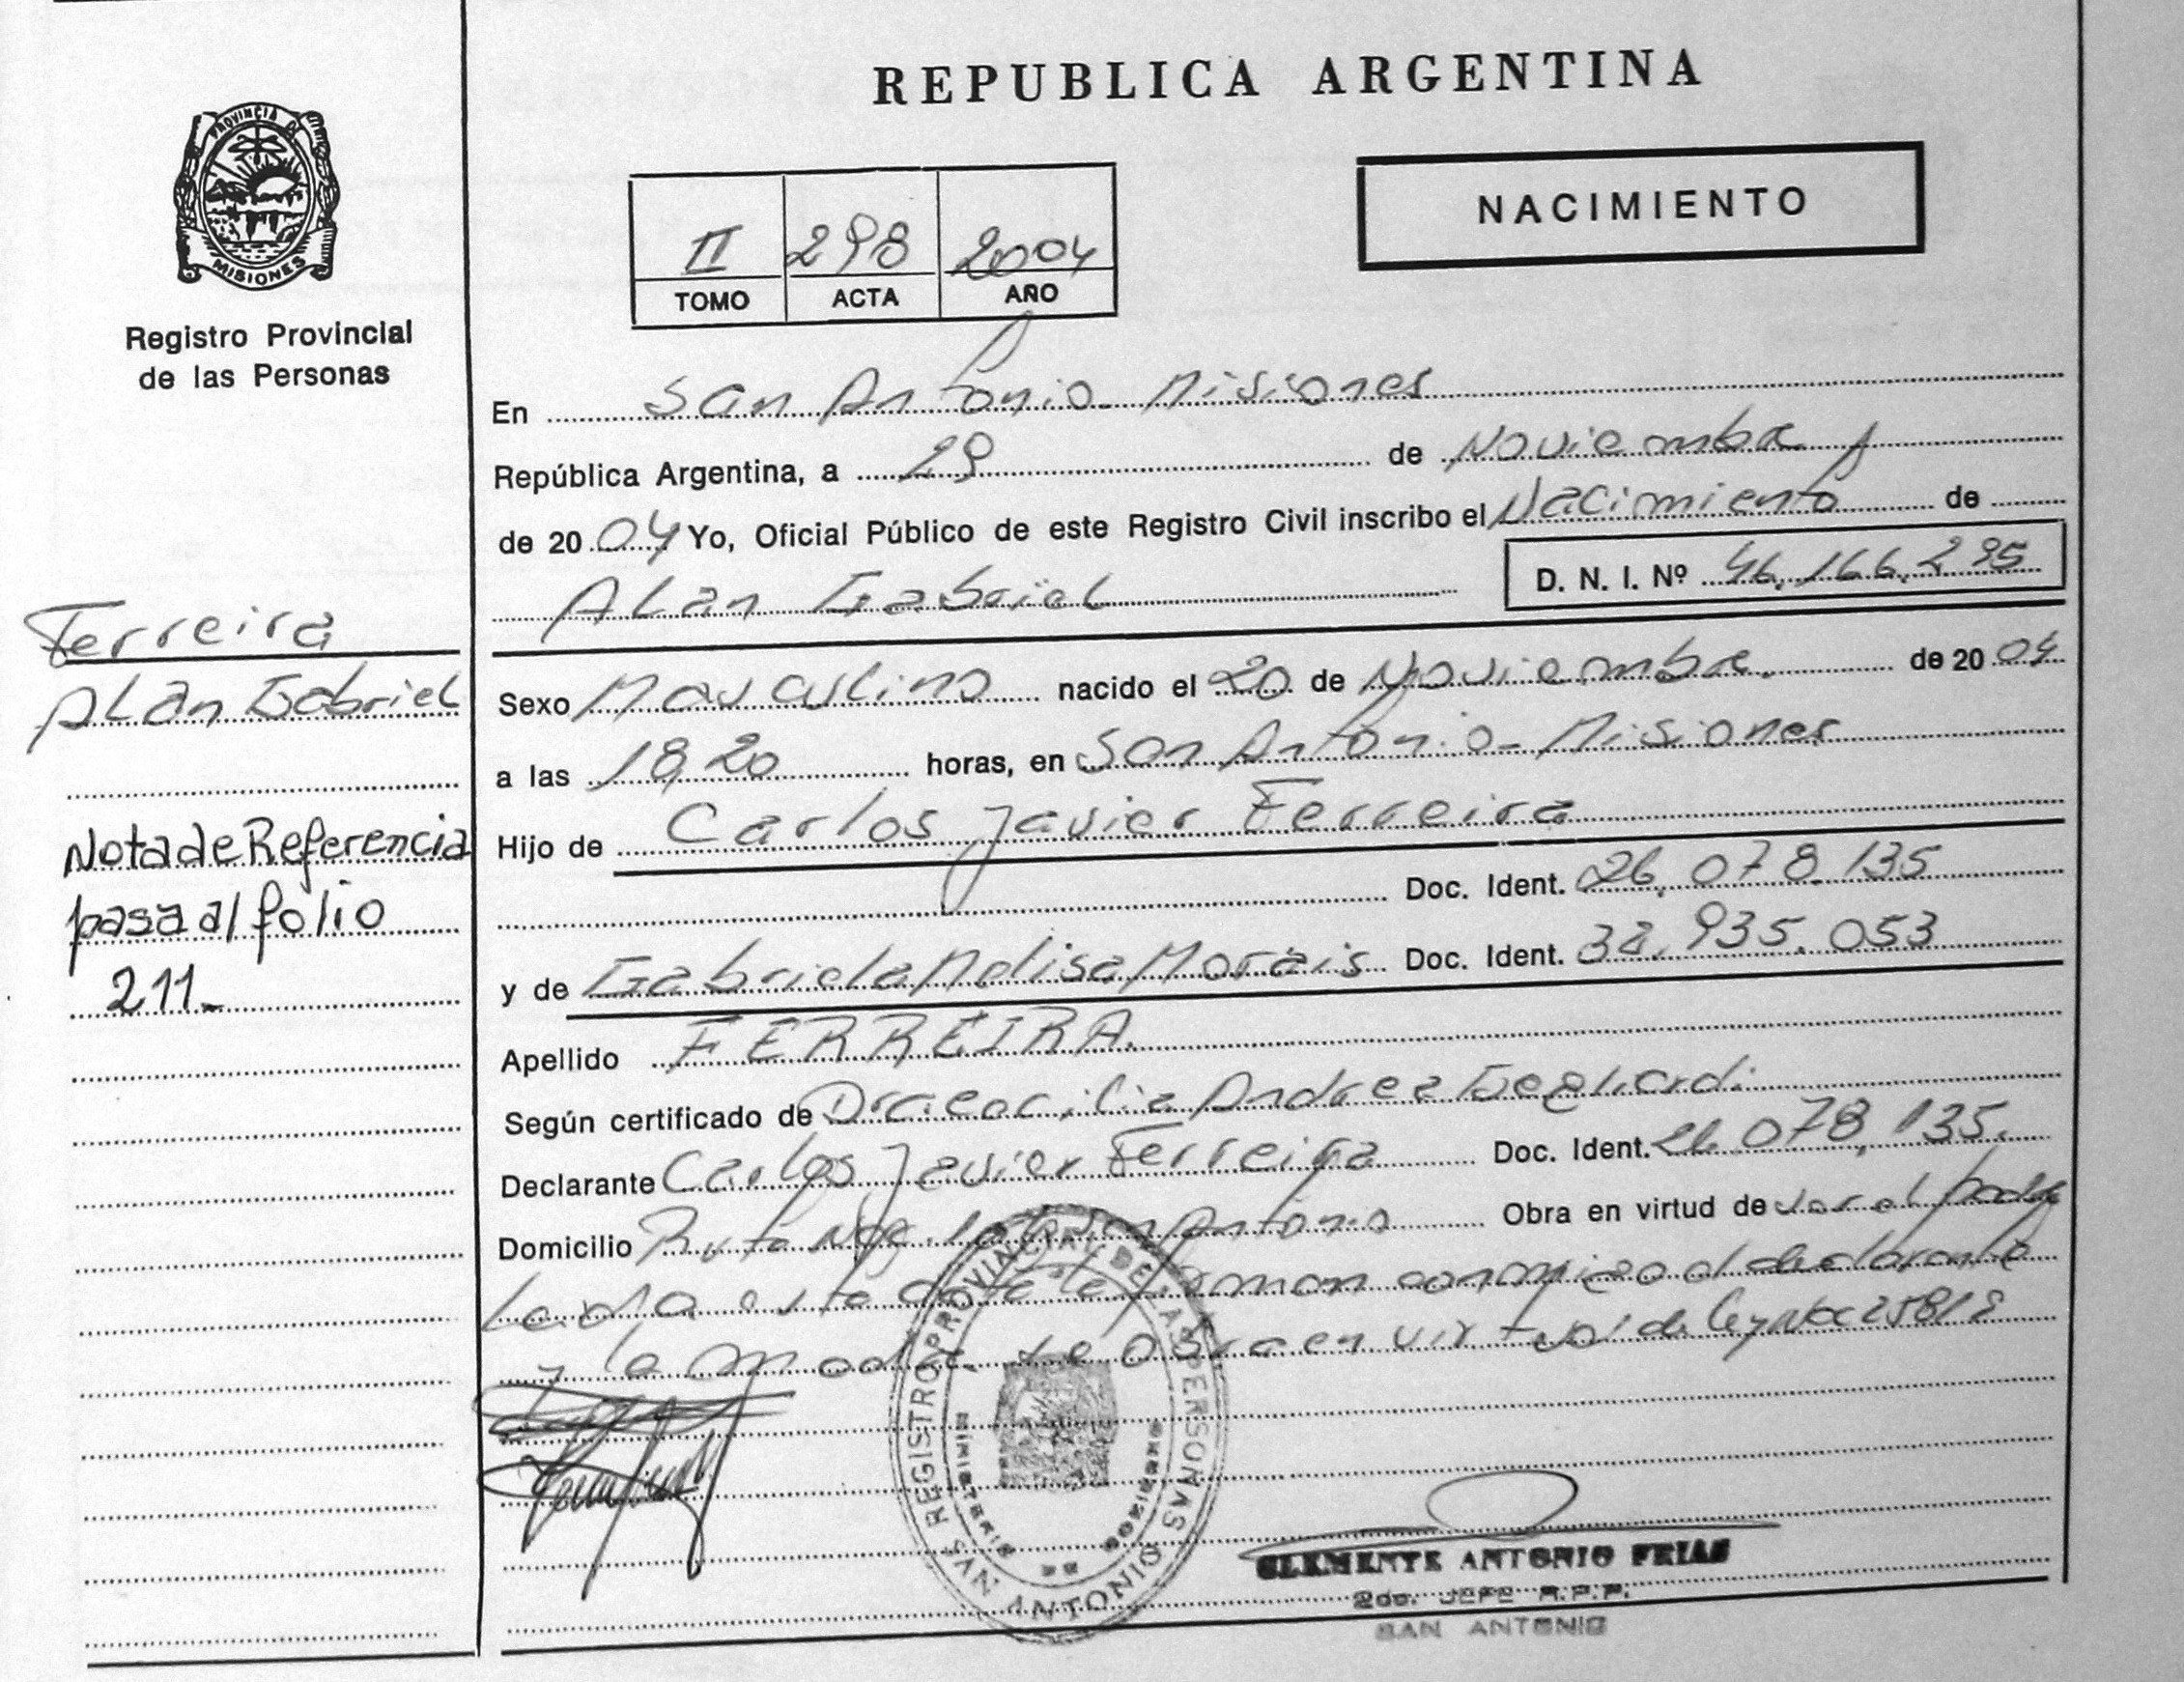 REPUBLICA ARGENTINA
PROVINCIA DE
MISIONES
Registro Provincial
de las Personas
NACIMIENTO
II 298 2004
TOMO ACTA AÑO
En San Antonio - Misiones
República Argentina, a 29 de Noviembre
de 2004 Yo, Oficial Público de este Registro Civil inscribo el Nacimiento de
Alan Gabriel D. N. I. Nº 46.166.295
Ferreira
Alan Gabriel
Sexo Masculino nacido el 20 de Noviembre. de 2004
a las 18,20 horas, en San Antonio - Misiones
Hijo de Carlos Javier Ferreira
Doc. Ident. 26.078.135
Nota de Referencia
pasa al folio
211.-
y de Gabriela Melisa Morais Doc. Ident. 32.935.053
Apellido FERREIRA.
Según certificado de Andrea
Declarante Carlos Javier Ferreira Doc. Ident. 26.078.135.
Domicilio Ruta San Antonio Obra en virtud de ser el padre
Leida esta acta la firman conmigo el declarante
y la madre. se obra en virtud de Ley 25818
REGISTRO PROVINCIAL DE LAS PERSONAS
SAN ANTONIO
MINISTERIO DE GOBIERNO
CLEMENTE ANTONIO FRIAS
2do. JEFE R.P.P.
SAN ANTONIO